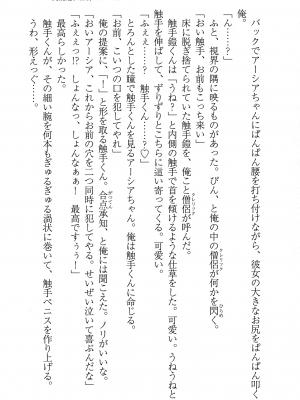 俺。
バックでアーシアちゃんにぱんぱん腰を打ち付けながら、彼女の大きなお尻をぱんぱん叩く
「ん……?」
ふと、視界の隅に映るものがあった。ぴん、と俺の中の僧侶が何かを閃く。
「おい触手、お前もこっち来い」
床に脱ぎ捨てられていた触手鎧を、俺こと僧侶が呼んだ。
触手鎧くんは「うね?」と内側の触手で首を傾けるような仕草をした。可愛い。うねうねと
触手を伸ばして、ずりずりとこちらに這い寄ってくる。可愛い。
「ふぇぇ……? 触手くん……?♡」
とろんとした瞳で触手くんを見るアーシアちゃん。俺は触手くんに命じる。
「お前、こいつの口を犯してやれ」
「ふぇぇっ?!」
俺の提案に、「!」と形を取る触手くん。合点承知、と俺には聞こえた。ノリがいいな。
「おいアーシア、これからお前の穴を二つ同時に犯してやる。せいぜい泣いて喜ぶんだな」
「ふぇぇぇ?! しょんなっ、しょんなぁぁー 最高ですぅぅー」
最高らしかった。
触手くんが、その細い腕を何本もぎゅるぎゅる渦状に巻いて、触手ペニスを作り上げる。
うわ、形えっぐ……。